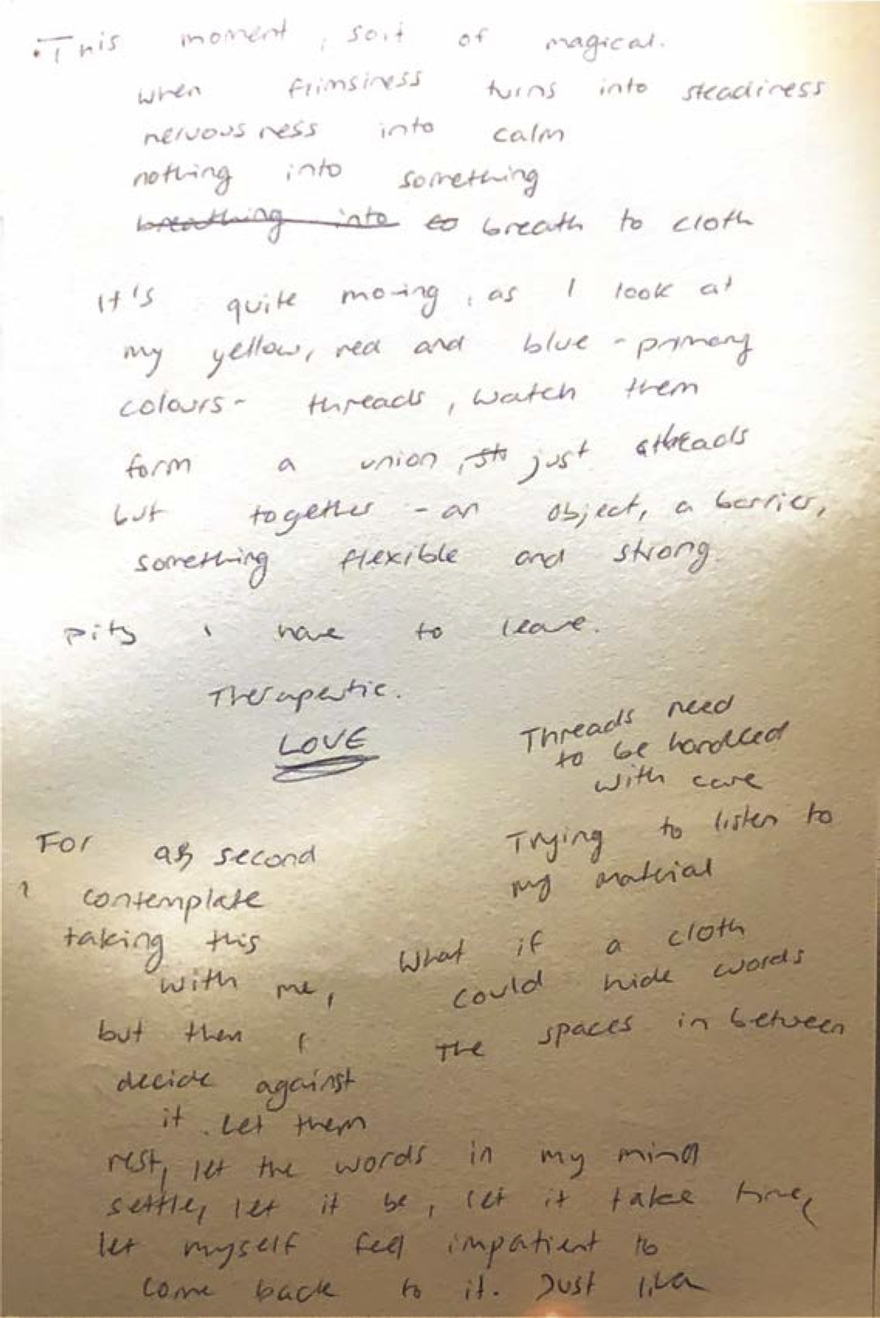 • This moment, sort of magical.
when flimsiness turns into steadiness
nervousness into calm
nothing into something
breathing into to breath to cloth
It's quite moving, as I look at
my yellow, red and blue - primary
colours - threads, watch them
form a union, just threads
but together - an object, a barrier,
something flexible and strong.
pity I have to leave.
Therapeutic.
LOVE
Threads need
to be handled
with care
Trying to listen to
my material
What if a cloth
could hide words
The spaces in between
For a second
I contemplate
taking this
with me,
but then I
decide against
it. Let them
rest, let the words in my mind
settle, let it be, let it take time,
let myself feel impatient to
come back to it. Just like